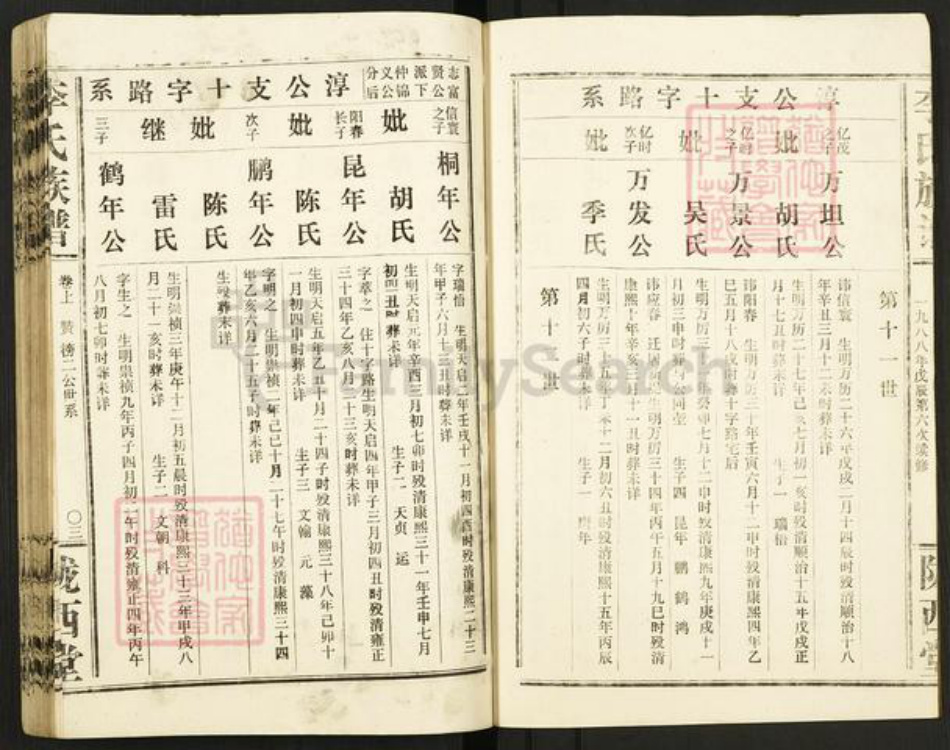 李氏族谱
一九八八年戊辰第六次续修
陇西堂
第十一世
淳公支十字路系
亿茂之子 万坦公
讳信寰 生明万历二十六年戊戌二月十四辰时殁清顺治十八
年辛丑三月十二未时葬未详
妣 胡氏
生明万历二十七年己亥七月初一亥时殁清顺治十五年戊戌正
月十七丑时葬未详 生子一 瑞怡
亿时之子 万景公
讳阳春 生明万历三十年壬寅六月十二申时殁清康熙四年乙
巳五月十八戌时葬十字路宅后
妣 吴氏
生明万历三十一年癸卯七月十二申时殁清康熙九年庚戌十一
月初三申时葬与公同茔 生子四 昆年 鹏 鹤 鸿
亿时次子 万发公
讳应春 迁居 生明万历三十四年丙午五月十九巳时殁清
康熙十年辛亥 月十一丑时葬未详
妣 季氏
生明万历三十五年丁未十二月初六丑时殁清康熙十五年丙辰
四月初六子时葬未详 生子一 年
第十二世
志富贤公派下仲锦义公分后
淳公支十字路系
信寰之子 桐年公
字瑞怡 生明天启二年壬戌十一月初四酉时殁清康熙二十三
年甲子六月十三丑时葬未详
妣 胡氏
生明天启元年辛酉三月初七卯时殁清康熙三十一年壬申七月
初四丑时葬未详 生子二 天贞 运
阳春长子 昆年公
字莘之 住十字路生明天启四年甲子三月初四丑时殁清雍正
三十四年乙亥八月二十三亥时葬未详
妣 陈氏
生明天启五年乙丑十月二十四子时殁清康熙三十八年己卯十
一月初四申时葬未详 生子三 文翰 元 藻
次子 鹏年公
字明之 生明崇祯二年己巳十月二十七午时殁清康熙三十四
年乙亥六月二十五子时葬未详
妣 陈氏
生殁葬未详
继 雷氏
生明崇祯三年庚午十二月初五辰时殁清康熙三十三年甲戌八
月二十一亥时葬未详 生子二 文朝 科
三子 鹤年公
字生之 生明崇祯九年丙子四月初二午时殁清雍正四年丙午
八月初七卯时葬未详
李氏族谱
卷上 赞榜二公世系
〇三
陇西堂
FamilySearch